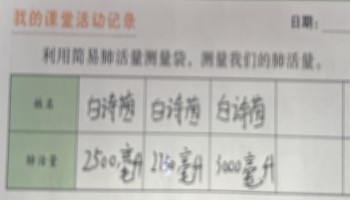 我的课堂活动记录
日期：
利用简易肺活量测量袋，测量我们的肺活量。
姓名 白诗茵 白诗茵 白诗茵
肺活量 2500毫升 2750毫升 3000毫升